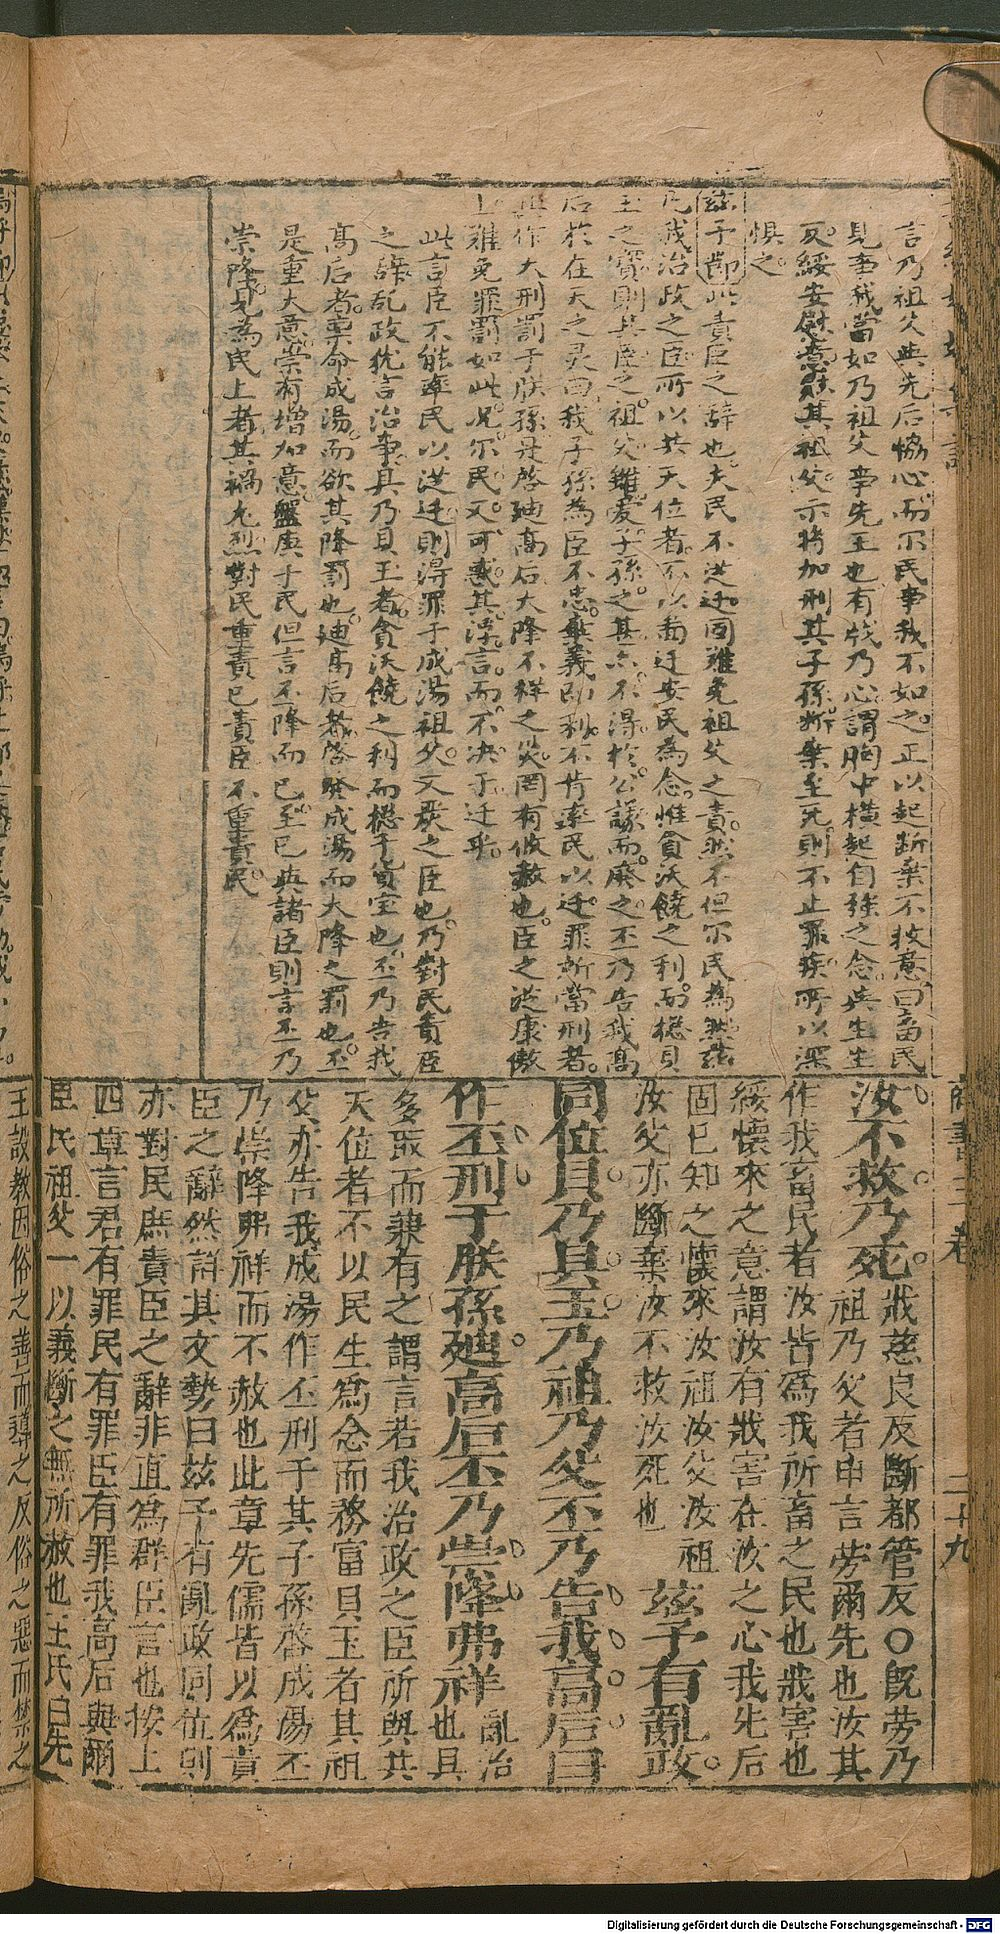 言乃祖父與先后恊心而尔民事我不如之正以起斷棄不救意曰畜民
見事我當如乃祖父事先王也有戕乃心謂胸中橫起自強之念與生生
反綏安慰意
其祖父示將加刑其子孫斷棄至死則不止罪疾所以深
懼之
茲予節此責臣之辭也夫民不從迁固難免祖父之責然不但尔民為然茲
凡我治政之臣所以共天位者不以啚迁安民為念惟貪沃饒之利而緫貝
玉之寳則其臣之祖父雖愛子孫之甚亦不得於公議而廢之丕乃告我高
后於在天之灵曰我子孫為臣不忠棄義即利不肯率民以迁罪所當刑者
其作大刑罰于朕孫丹啓迪高后大降不祥之災罔有攸赦也臣之從康傲
上難免罪罰如此况尔民又可惑其浮言而不决于迁乎
此言臣不能率民以從迁則得罪于成湯祖父文厥之臣也乃對民責臣
之辞乱政犹言治事具乃貝玉者貪沃饒之利而緫于貨宝也丕乃告我
高后者稟命成湯而欲其降罰也迪高后者啓發成湯而大降之罰也丕
是重大意崇有增加意盤庚于民但言丕降而已至已與諸臣則言丕乃
崇降見為民上者其禍尤烈對民重責已責臣不重責民
商書 三卷 二十九
汝不救乃死 戕慈良反斷都管反○旣勞乃
祖乃父者申言勞爾先也汝其
作我畜民者汝皆爲我所畜之民也戕害也
綏懷來之意謂汝有戕害在汝之心我先后
固已知之懷來汝祖汝父汝祖
汝父亦斷棄汝不救汝死也 茲予有亂政
同位具乃貝玉乃祖乃父丕乃告我高后曰
作丕刑于朕孫迪高后丕乃崇降弗祥 亂治
也具
多取而兼有之謂言若我治政之臣所與共
天位者不以民生爲念而務富貝玉者其祖
父亦告我成湯作丕刑于其子孫啓成湯丕
乃崇降弗祥而不赦也此章先儒皆以爲責
臣之辭然詳其文勢曰茲予有亂政同位則
亦對民庶責臣之辭非直爲群臣言也按上
四章言君有罪民有罪臣有罪我高后與爾
臣民祖父一以義斷之無所赦也王氏曰先
王設教因俗之善而導之反俗之惡而禁之
Digitalisierung gefördert durch die Deutsche Forschungsgemeinschaft - DFG